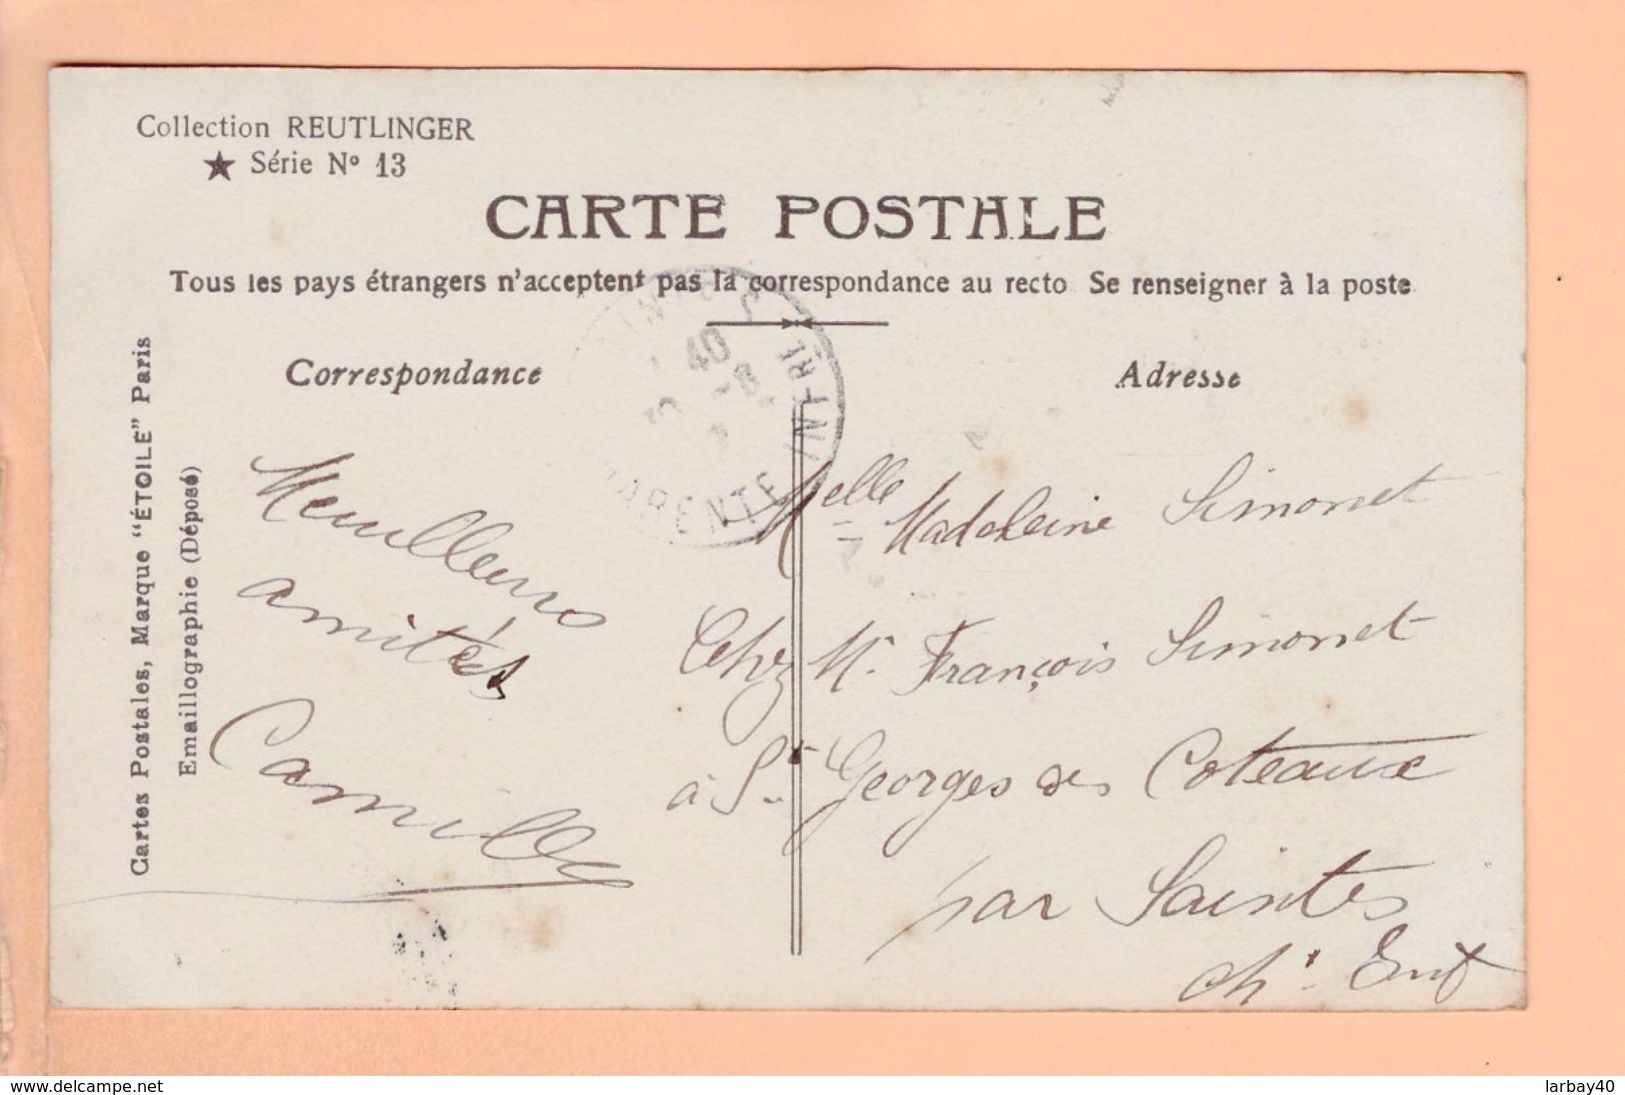 Collection REUTLINGER
★ Série Nº 13
CARTE POSTALE
Tous les pays étrangers n'acceptent pas la correspondance au recto Se renseigner à la poste
Correspondance
Adresse
Cartes Postales, Marque "ÉTOILE" Paris
Emaillographie (Déposé)
Meuilleurs
amitiés
Camille
Melle Madeleine Simonet
Chez Mr. François Simonet
à St. Georges des Coteaux
par Saintes
Ch. Inf
40
INFRE
www.delcampe.net
larbay40